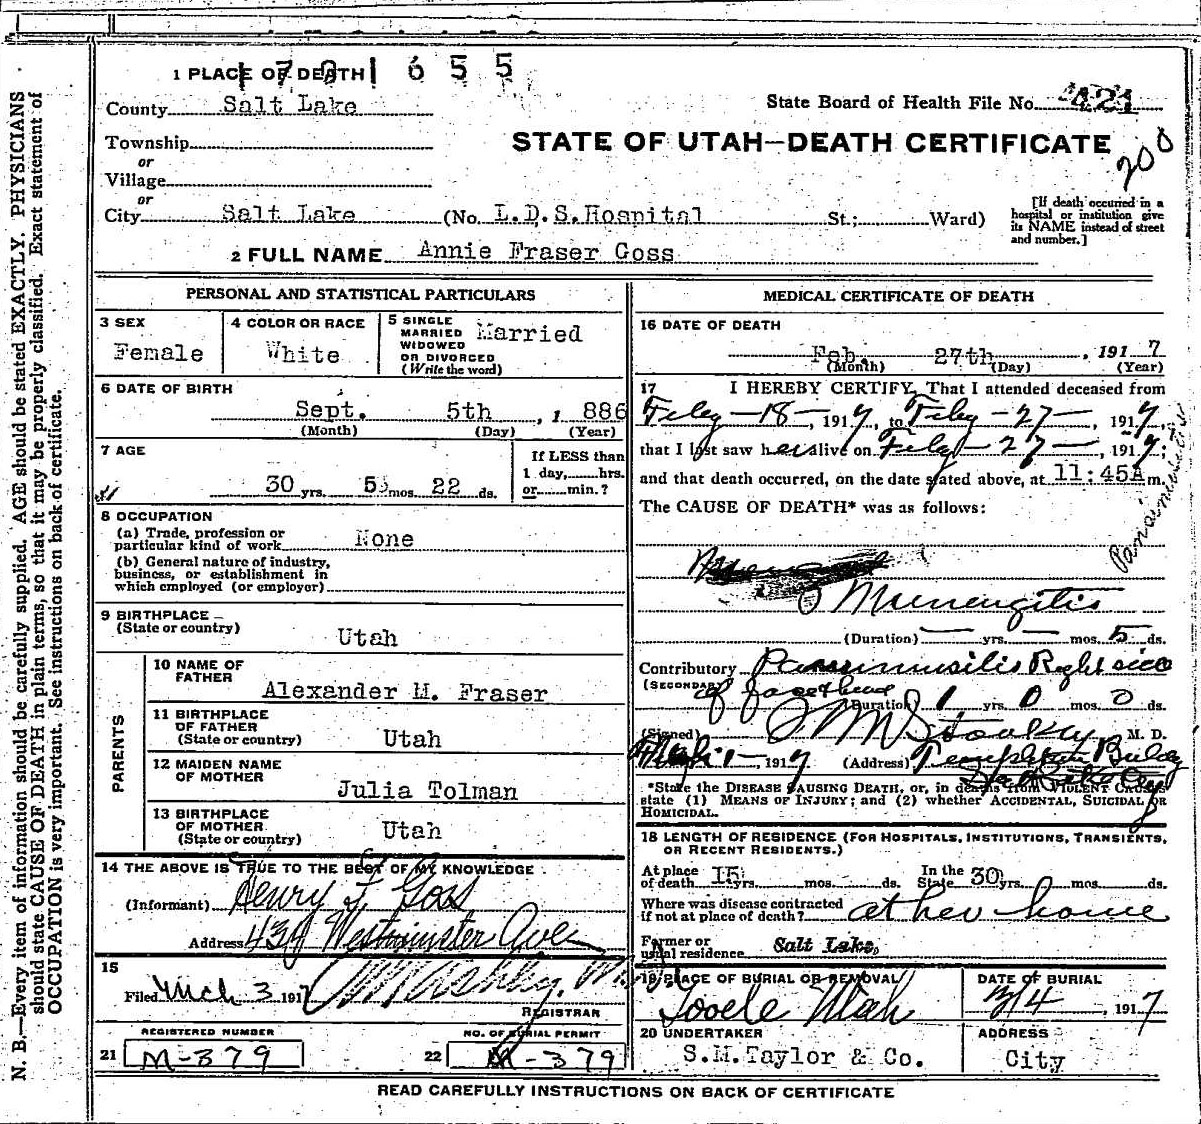 1 PLACE OF DEATH
1 7 0 1 6 5 5
County Salt Lake
State Board of Health File No. 421
Township
or
Village
or
STATE OF UTAH—DEATH CERTIFICATE
200
City Salt Lake (No. L.D.S.Hospital St.; Ward)
[If death occurred in a
hospital or institution give
its NAME instead of street
and number.]
2 FULL NAME Annie Fraser Goss
PERSONAL AND STATISTICAL PARTICULARS
3 SEX
Female
4 COLOR OR RACE
White
5 SINGLE
MARRIED
WIDOWED
OR DIVORCED
(Write the word)
Married
6 DATE OF BIRTH
Sept. 5th , 1 886
(Month) (Day) (Year)
7 AGE
30 yrs. 5 mos. 22 ds.
If LESS than
1 day, hrs.
or min.?
8 OCCUPATION
(a) Trade, profession or
particular kind of work None
(b) General nature of industry,
business, or establishment in
which employed (or employer)
9 BIRTHPLACE
(State or country)
Utah
PARENTS
10 NAME OF
FATHER
Alexander M. Fraser
11 BIRTHPLACE
OF FATHER
(State or country) Utah
12 MAIDEN NAME
OF MOTHER
Julia Tolman
13 BIRTHPLACE
OF MOTHER
(State or country) Utah
14 THE ABOVE IS TRUE TO THE BEST OF MY KNOWLEDGE
(Informant) Henry J. Goss
Address Westminster Ave
15
Filed Mch 3 1917
REGISTRAR
REGISTERED NUMBER
21 M-379
NO. OF BURIAL PERMIT
22 M-379
MEDICAL CERTIFICATE OF DEATH
16 DATE OF DEATH
Feb. 27th , 191 7
(Month) (Day) (Year)
17 I HEREBY CERTIFY, That I attended deceased from
Feby-18-, 1917, to Feby-27-, 1917,
that I last saw her alive on Feby-27-, 1917;
and that death occurred, on the date stated above, at 11:45A m.
The CAUSE OF DEATH* was as follows:
(Duration) — yrs. — mos. 5 ds.
Contributory Right side
(SECONDARY) of forehead
(Duration) 1 yrs. 0 mos. 0 ds.
(Signed) M. D.
, 1917 (Address) Templeton Buldg
Salt Lake City
*State the DISEASE CAUSING DEATH, or, in deaths from VIOLENT CAUSES,
state (1) MEANS OF INJURY; and (2) whether ACCIDENTAL, SUICIDAL or
HOMICIDAL.
18 LENGTH OF RESIDENCE (FOR HOSPITALS, INSTITUTIONS, TRANSIENTS,
OR RECENT RESIDENTS.)
At place
of death 15 yrs. mos. ds.
In the
State 30 yrs. mos. ds.
Where was disease contracted
if not at place of death? at her home
Former or
usual residence Salt Lake,
19 PLACE OF BURIAL OR REMOVAL
Tooele Utah
DATE OF BURIAL
3/4 , 1917
20 UNDERTAKER
S.M.Taylor & Co.
ADDRESS
City
READ CAREFULLY INSTRUCTIONS ON BACK OF CERTIFICATE
N. B.—Every item of information should be carefully supplied. AGE should be stated EXACTLY. PHYSICIANS
should state CAUSE OF DEATH in plain terms, so that it may be properly classified. Exact statement of
OCCUPATION is very important. See instructions on back of certificate.